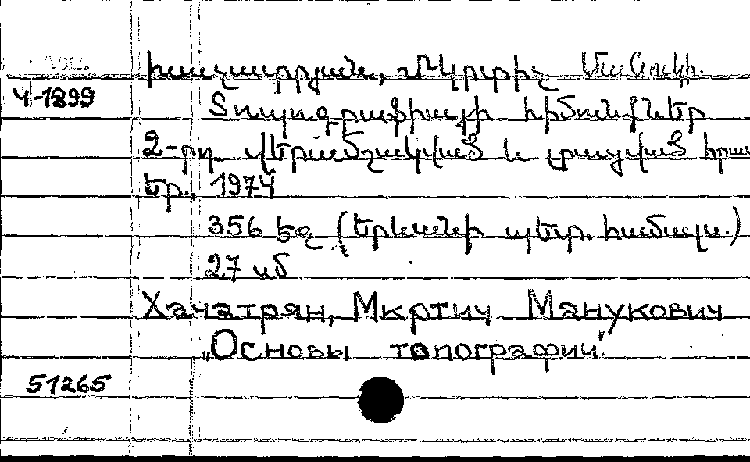 Խաչատրյան, Մկրտիչ Մանուկի.
Ч-1899
Տոպոգրաֆիայի հիմունքներ
2-րդ. վերամշակված և լրացված հրատ
Եր., 1974
356 էջ (Երևանի պետ. համալս.)
27 սմ
Хачатрян, Мкртич Манукович
„Основы топографии“.
51265